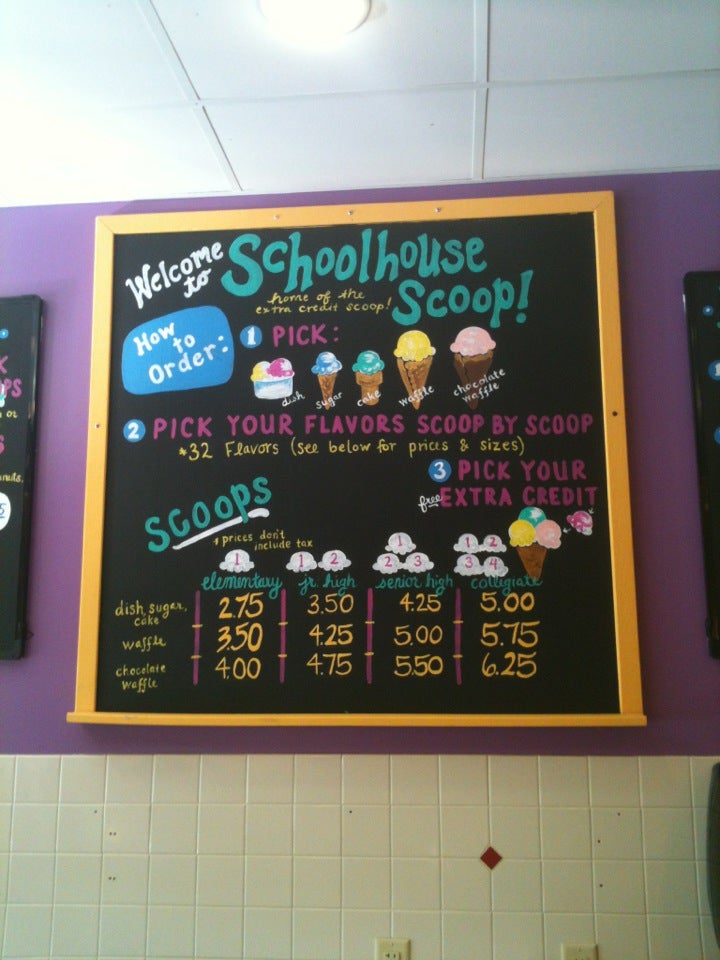 Welcome to Schoolhouse Scoop!
home of the
extra credit scoop!
How
to
Order:
1 PICK:
dish sugar cake waffle chocolate
waffle
2 PICK YOUR FLAVORS SCOOP BY SCOOP
*32 Flavors (see below for prices & sizes)
3 PICK YOUR
free EXTRA CREDIT
SCOOPS
* prices don't
include tax
1 1 2 1 2 3 1 2 3 4
elementary jr. high senior high collegiate
dish, sugar, cake 2.75 3.50 4.25 5.00
waffle 3.50 4.25 5.00 5.75
chocolate waffle 4.00 4.75 5.50 6.25